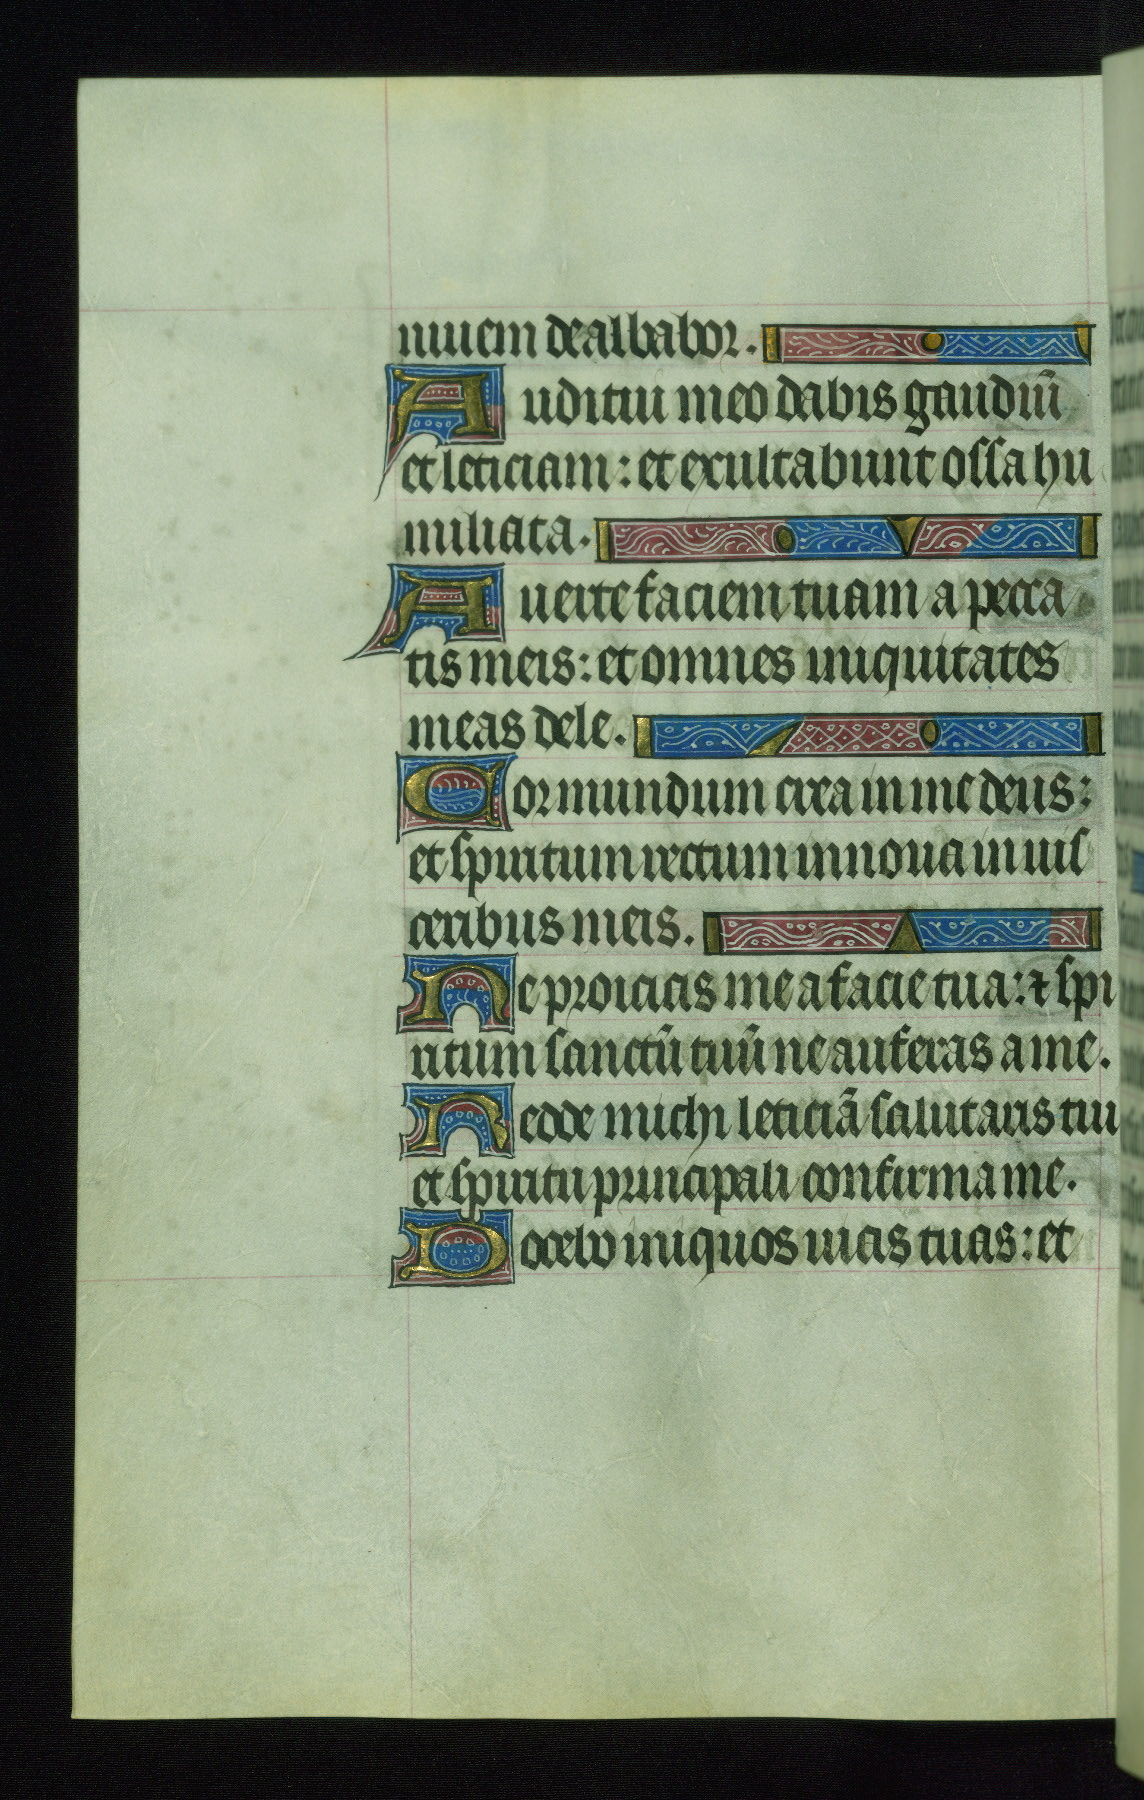 niuem dealbabor.
Auditui meo dabis gaudiū
et leticiam: et exultabunt ossa hu
miliata.
Auerte faciem tuam a pecca
tis meis: et omnes iniquitates
meas dele.
Cor mundum crea in me deus:
et spiritum rectum innoua in uis
ceribus meis.
Ne proicias me a facie tua: ⁊ spi
ritum sanctū tuū ne auferas a me.
Redde michi leticiā salutaris tui
et spiritu principali confirma me.
Docebo iniquos uias tuas: et